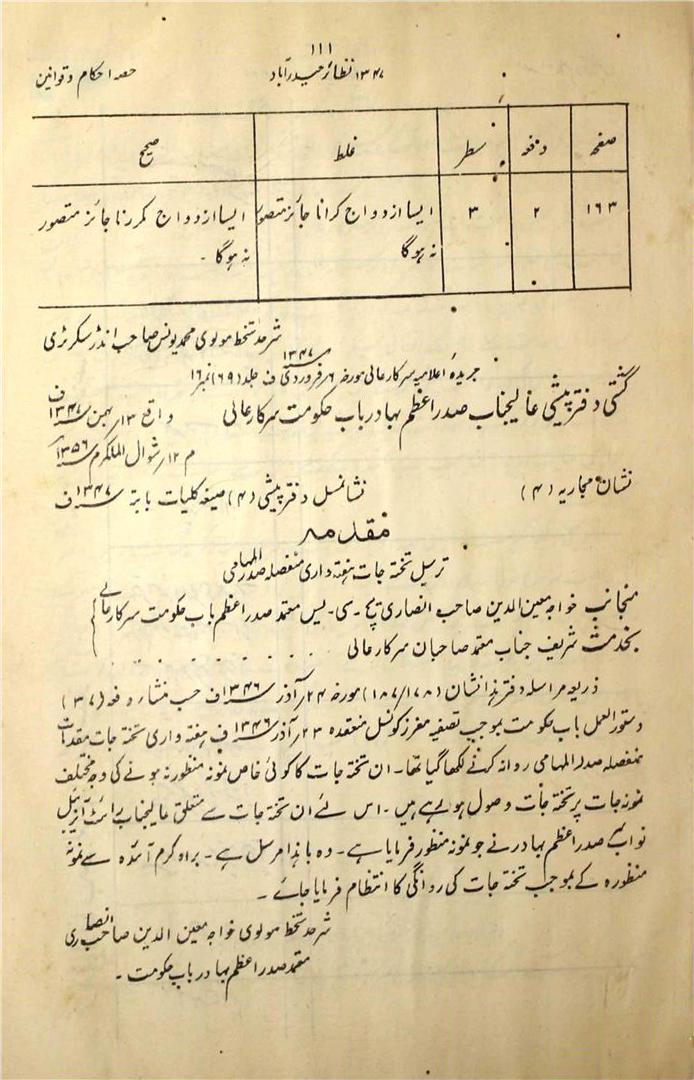 ۱۱۱
۱۳۴۷ نظائر حیدرآباد
حصہ احکام و قوانین
صفحہ دفعہ سطر غلط صحیح
۱۶۳ ۲ ۳ ایسا ازدواج کرانا جائز متصور ایسا ازدواج کررنا جائز متصور
نہ ہوگا نہ ہوگا ۔
شرحدستخط مولوی محمد یونس صاحب انڈر سکرٹری
جریدۂ اعلامیہ سرکار عالی مورخہ ۶ فروردی ۱۳۴۷ ف جلد (۶۹) نمبر ۱۶
گشتی دفتر پیشی عالیجناب صدر اعظم بہادر باب حکومت سرکار عالی واقع ۱۳؍بہمن ۱۳۴۷ ف
م ۱۲؍شوال المکرم ۱۳۵۶
نشان مجاریہ (۴) نشانمسل دفتر پیشی (۴) صیغہ کلیات بابتہ ۱۳۴۷ ف
مقدمہ
ترسیل تختہ جات ہفتہ داری منفصلہ صدر المہامی
منجانب خواجہ معین الدین صاحب انصاری یچ ۔ سی ۔ یس معتمد صدر اعظم باب حکومت سرکار عالے
بخدمت شریف جناب معتمد صاحبان سرکار عالی
ذریعہ مراسلہ دفتر ہذا نشان (۱۸۷/۱۷۸) مورخہ ۲۴؍آذر ۱۳۴۶ ف حسب منشار دفعہ (۳۷)
دستور العمل باب حکومت بموجب تصفیہ معزز کونسل منعقدہ ۲۳؍آذر ۱۳۴۶ ف ہفتہ واری تختہ جات مقدمات
منفصلہ صدر المہامی روانہ کرنے لکھا گیا تھا۔ ان تختہ جات کا کوئی خاص نمونہ منظورنہ ہونے کی وجہ مختلف
نمونہ جات پر تختہ جات وصول ہو رہے ہیں ۔ اس لئے ان تختہ جات سے متعلق عالیجناب رائٹ آنریبل
نواب صدر اعظم بہادر نے جو نمونہ منظور فرمایا ہے ۔ وہ باہذا مرسل ہے ۔ براہ کرم آئندہ سے نمونہ
منظورہ کے بموجب تختہ جات کی روانگی کا انتظام فرمایا جائے ۔
شرحدستخط مولوی خواجہ معین الدین صاحب انصاری
معتمد صدر اعظم بہادر باب حکومت ۔